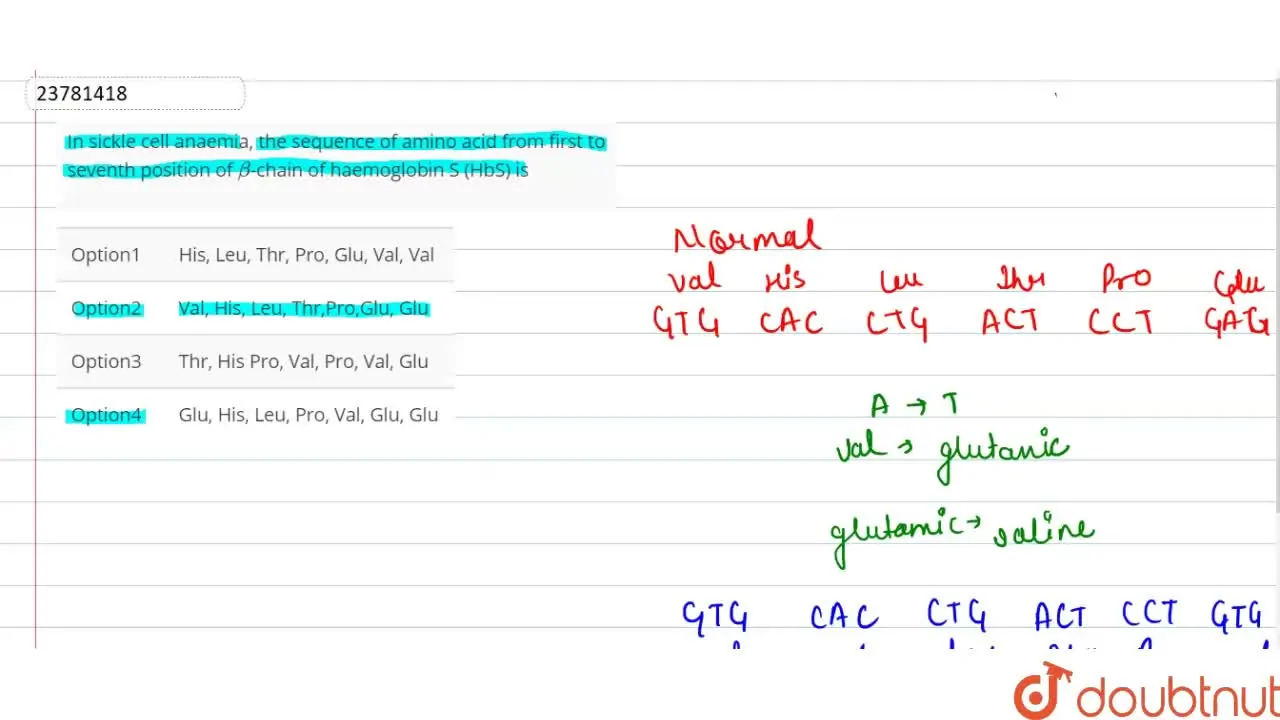 23781418
In sickle cell anaemia, the sequence of amino acid from first to
seventh position of β-chain of haemoglobin S (HbS) is
Option1 His, Leu, Thr, Pro, Glu, Val, Val
Option2 Val, His, Leu, Thr,Pro,Glu, Glu
Option3 Thr, His Pro, Val, Pro, Val, Glu
Option4 Glu, His, Leu, Pro, Val, Glu, Glu
Normal
Val His Leu Thr Pro Glu
GTG CAC CTG ACT CCT GAG
A → T
Val → glutanic
glutamic → saline
GTG CAC CTG ACT CCT GTG
doubtnut